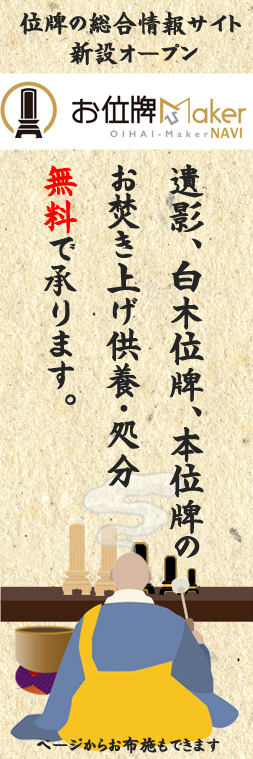 位牌の総合情報サイト
新設オープン
お位牌Maker
OIHAI-MakerNAVI
遺影、白木位牌、本位牌の
お焚き上げ供養・処分
無料で承ります。
ページからお布施もできます